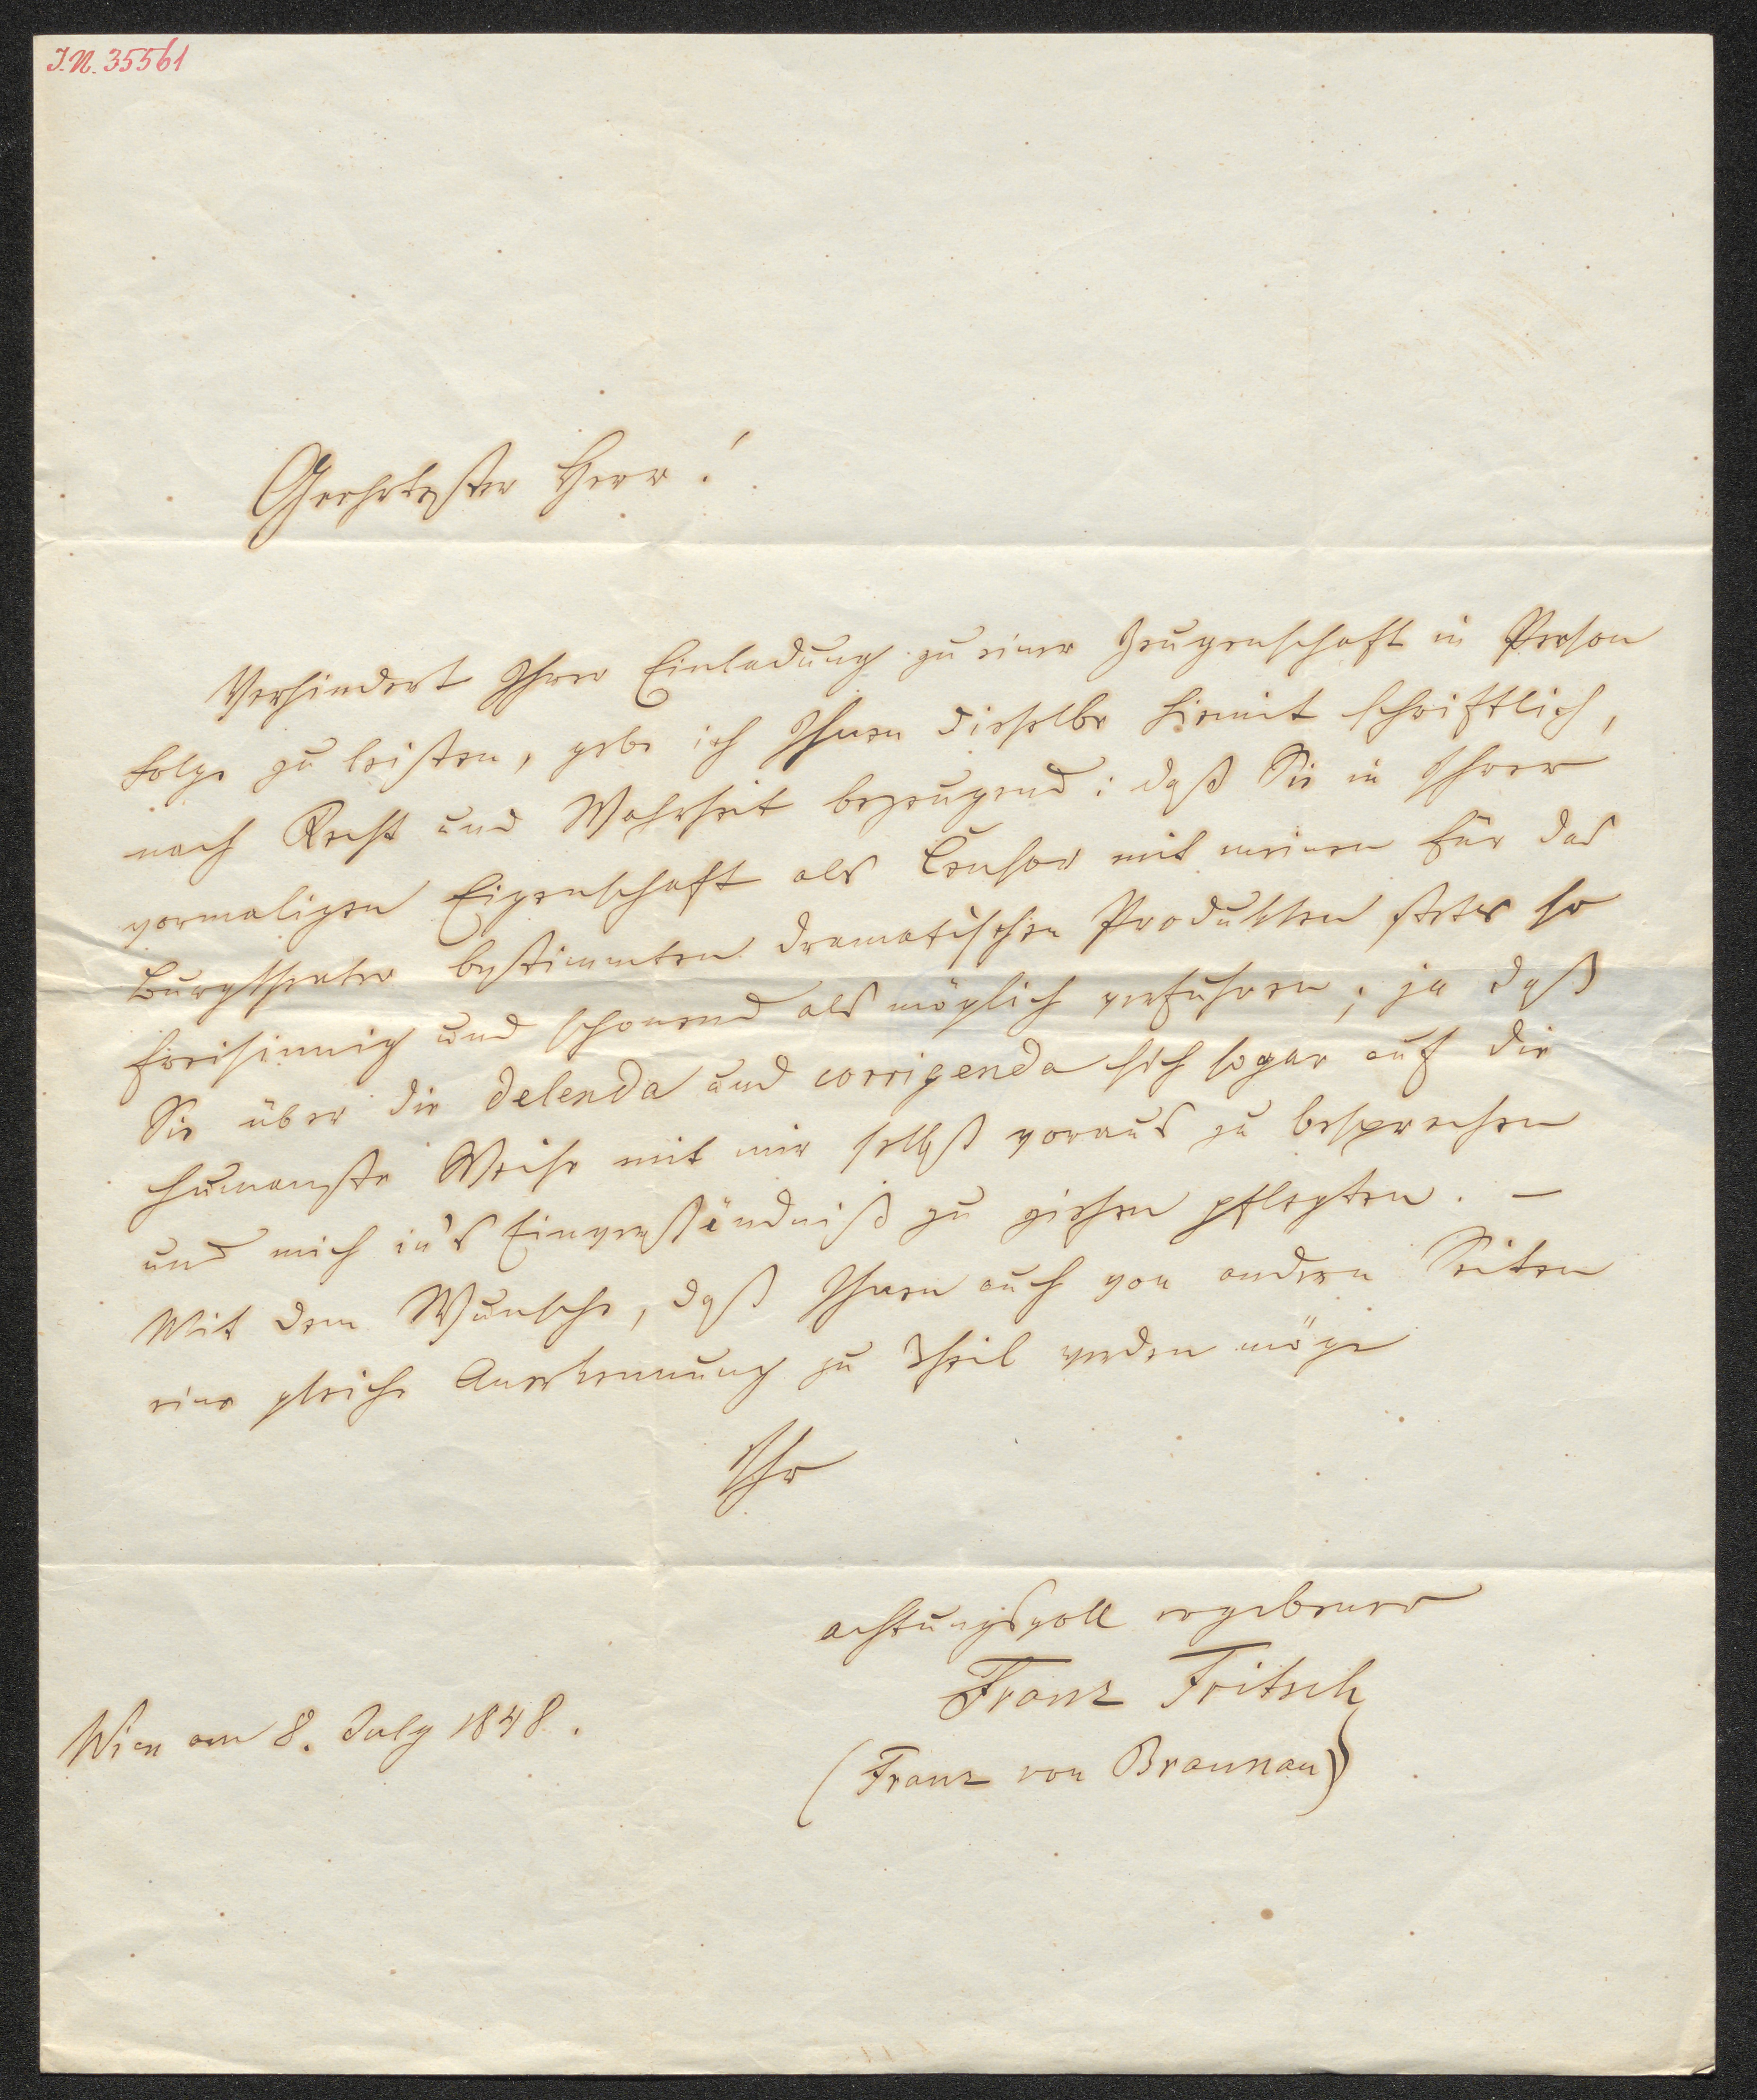 I.N. 35561
Geehrtester Herr!
Verhindert Ihrer Einladung zu einer Zeugenschaft in Person
Folge zu leisten, gebe ich Ihnen dieselbe hiemit schriftlich,
nach Recht und Wahrheit bezeugend: daß Sie in Ihrer
vormaligen Eigenschaft als Censor mit meinen für das
Burgtheater bestimmten dramatischen Produkten stets so
freisinnig und schonend als möglich verfuhren; ja daß
Sie über die delenda und corrigenda sich sogar auf die
humanste Weise mit mir selbst voraus zu besprechen
und mich in's Einverständniß zu ziehen pflegten. —
Mit dem Wunsche, daß Ihnen auch von andern Seiten
eine gleiche Anerkennung zu Theil werden möge
Ihr
achtungsvoll ergebener
Franz Fritsch
Wien am 8. July 1848.
(Franz von Braunau)